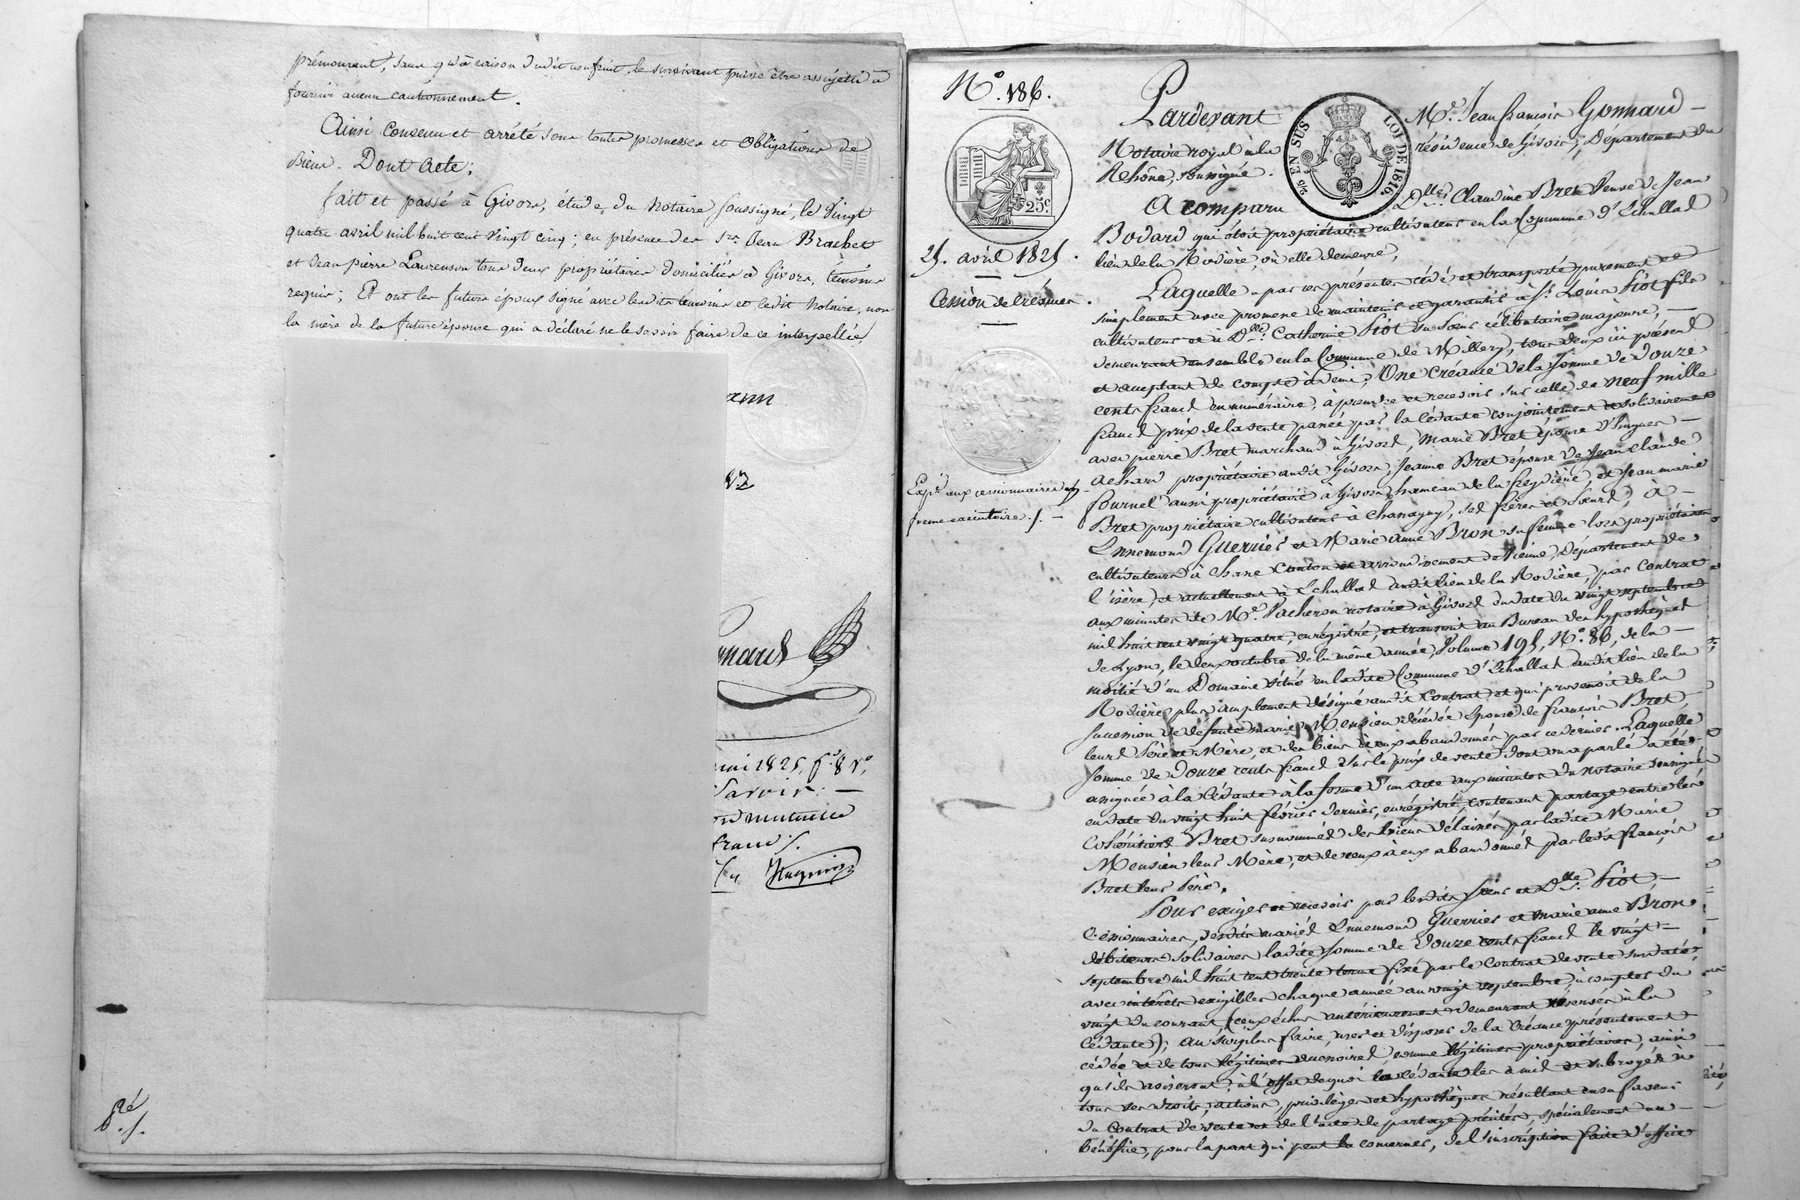 prémourant, sans qu'à raison dudit usufruit, le survivant puisse être assujetti à
fournir aucun cautionnement.
Ainsi convenu et arrêté sous toutes promesses et obligations de
Dont Acte;
fait et passé à Givors, étude du Notaire soussigné, le vingt
quatre avril mil huit cent vingt cinq; en présence des Srs Jean Brachet
et Jean Pierre Laurenson tous deux propriétaires domiciliés à Givors, témoins
requis; Et ont les futurs époux signé avec lesdits témoins et ledit Notaire, non
la mère de la future épouse qui a déclaré ne le savoir faire de ce interpellée
mai 1825, fo 8 Vo,
francs
Bret
No. 186.
25 EN SUS
LOI DE 1816.
25c.
25. avril 1825.
Cession de Créance.
Expn aux cessionnaires en
forme exécutoire
Pardevant Me. Jean françois Gonnard
Notaire royal à la résidence de Givors, Département du
Rhône, soussigné.
A comparu Dlle. Claudine Bret Veuve de Jean
Bodard qui étoit propriétaire cultivateur en la Commune d'Echallas
lieu de la Rodière, où elle demeure,
Laquelle a par ces présentes cédé et transporté purement et
simplement avec promesse de maintenir et garantir à Sr. Louis Piot fils
cultivateur et à Dlle. Catherine Piot sa Sœur célibataire majeure,
demeurant ensemble en la Commune de Millery, tous deux ici présens
et acceptant de compte à demi; Une Créance de la somme de Douze
cents francs en numéraire, à prendre et recevoir sur celle de neuf mille
francs prix de la vente passée par la Cédante conjointement et solidairement
avec pierre Bret marchand à Givors, Marie Bret épouse d'hugues
Achard propriétaire audit Givors, Jeanne Bret épouse de Jean Claude
fournel aussi propriétaire à Givors hameau de la freydière, et Jean marie
Bret propriétaire cultivateur à Chassagny, ses frères et Sœurs, à
Ennemond Guerrier et Marie anne Bron sa femme lors propriétaires
cultivateurs à Chane Canton et arrondissement de Vienne, Département de
l'isère, et actuellement à Echallas audit lieu de la Rodière, par Contrat
aux minutes de Me. Pacheron notaire à Givors en date du vingt septembre
mil huit cent vingt quatre, enregistré, et transcrit au Bureau des hypothèques
de Lyon, le deux octobre de la même année, Volume 195, No. 86, de la
moitié d'un Domaine situé en ladite Commune d'Echallas audit lieu de la
Rodière plus amplement désigné audit Contrat et qui provenoit de la
succession de défunte marie Mensieu décédée épouse de françois Bret
leurs Père et Mère, et des biens à eux abandonnés par ce dernier. Laquelle
somme de Douze cents francs sur le prix de vente dont on a parlé a été
assignée à la Cédante à la forme d'un acte aux minutes du notaire soussigné
en date du vingt huit février dernier, enregistré, contenant partage entre les
Cohéritiers Bret susnommés des biens délaissés par ladite Marie
Mensieu leur Mère, et de ceux à eux abandonnés par ledit françois
Bret leur Père.
Pour exiger et recevoir par lesdits Sieur et Dlle. Piot
Cessionnaires, desdits mariés Ennemond Guerrier et marie anne Bron
débiteurs solidaires ladite somme de Douze cents francs le vingt
septembre mil huit cent trente terme fixé par le Contrat de vente sus daté,
avec intérêts exigibles chaque année au vingt septembre, à compter du
vingt du courant, (ceux échus antérieurement demeurant réservés à la
Cédante); Au surplus faire, user et disposer de la Créance présentement
cédée et de tous légitimes accessoires comme légitimes propriétaires, ainsi
qu'ils aviseront; à l'effet de quoi la cédante les a mis et subrogés à
tous ses droits, actions, privilèges et hypothèques résultant en sa faveur
du Contrat de vente et de l'acte de partage précités, spécialement au
bénéfice, pour la part qui peut la concerner, de l'inscription faite d'office